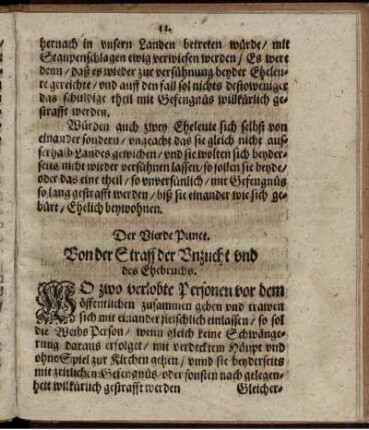 11.
hernach in vnsern Landen betreten würde/ mit
Staupenschlagen ewig verwiesen werden/ Es were
denn/ daß es wieder zur versühnung beyder Eheleu-
te gereichte/ vnd auff den fall sol nichts destoweniger
das schuldige theil mit Gefengnüs wilkürlich ge-
strafft werden.
Würden auch zwey Eheleute sich selbst von
einander sondern/ vngeacht das sie gleich nicht aus-
serhalb Landes gewichen/ vnd sie wolten sich beyder-
seits nicht wieder versühnen lassen/ so sollen sie beyde/
oder das eine theil/ so vnversünlich/ mit Gefengnüs
so lang gestrafft werden/ biß sie einander wie sich ge-
bürt/ Ehelich beywohnen.
Der Vierde Punct.
Von der Straff der Vnzucht vnd
des Ehebruchs.
WO zwo verlobte Personen vor dem
öffentlichen zusammen geben vnd trawen
sich mit einander fleischlich einlassen/ so sol
die Weibs Person/ wenn gleich keine Schwänge-
rung daraus erfolget/ mit verdecktem Häupt vnd
ohne Spiel zur Kirchen gehen/ vnnd sie beyderseits
mit zeitlichen Gefengnüs oder sonsten nach gelegen-
heit wilkürlich gestrafft werden Gleicher-